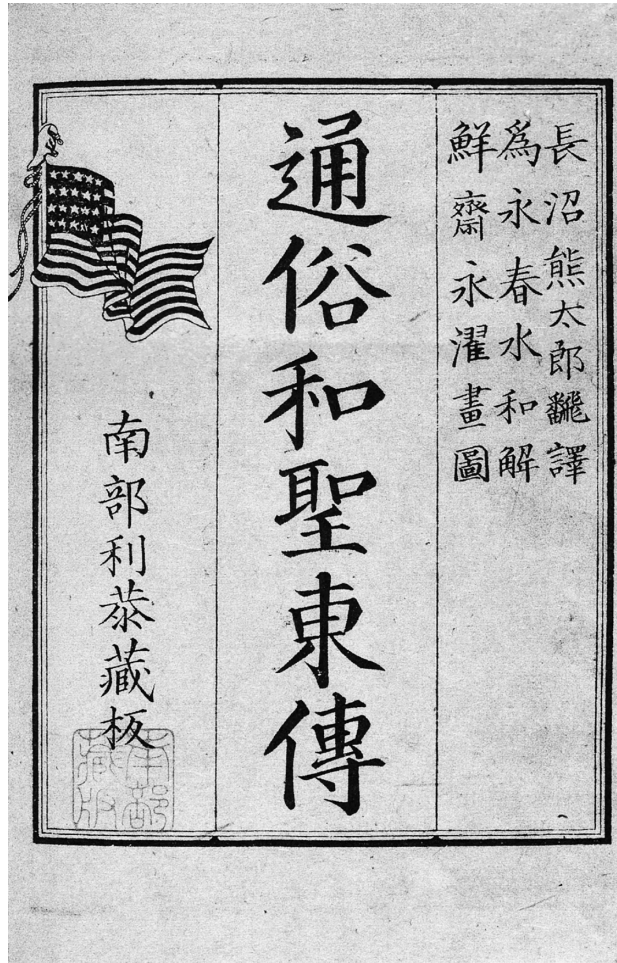 長沼熊太郎飜譯
爲永春水和解
鮮齋永濯畫圖
通俗和聖東傳
南部利恭藏板
南部
藏版